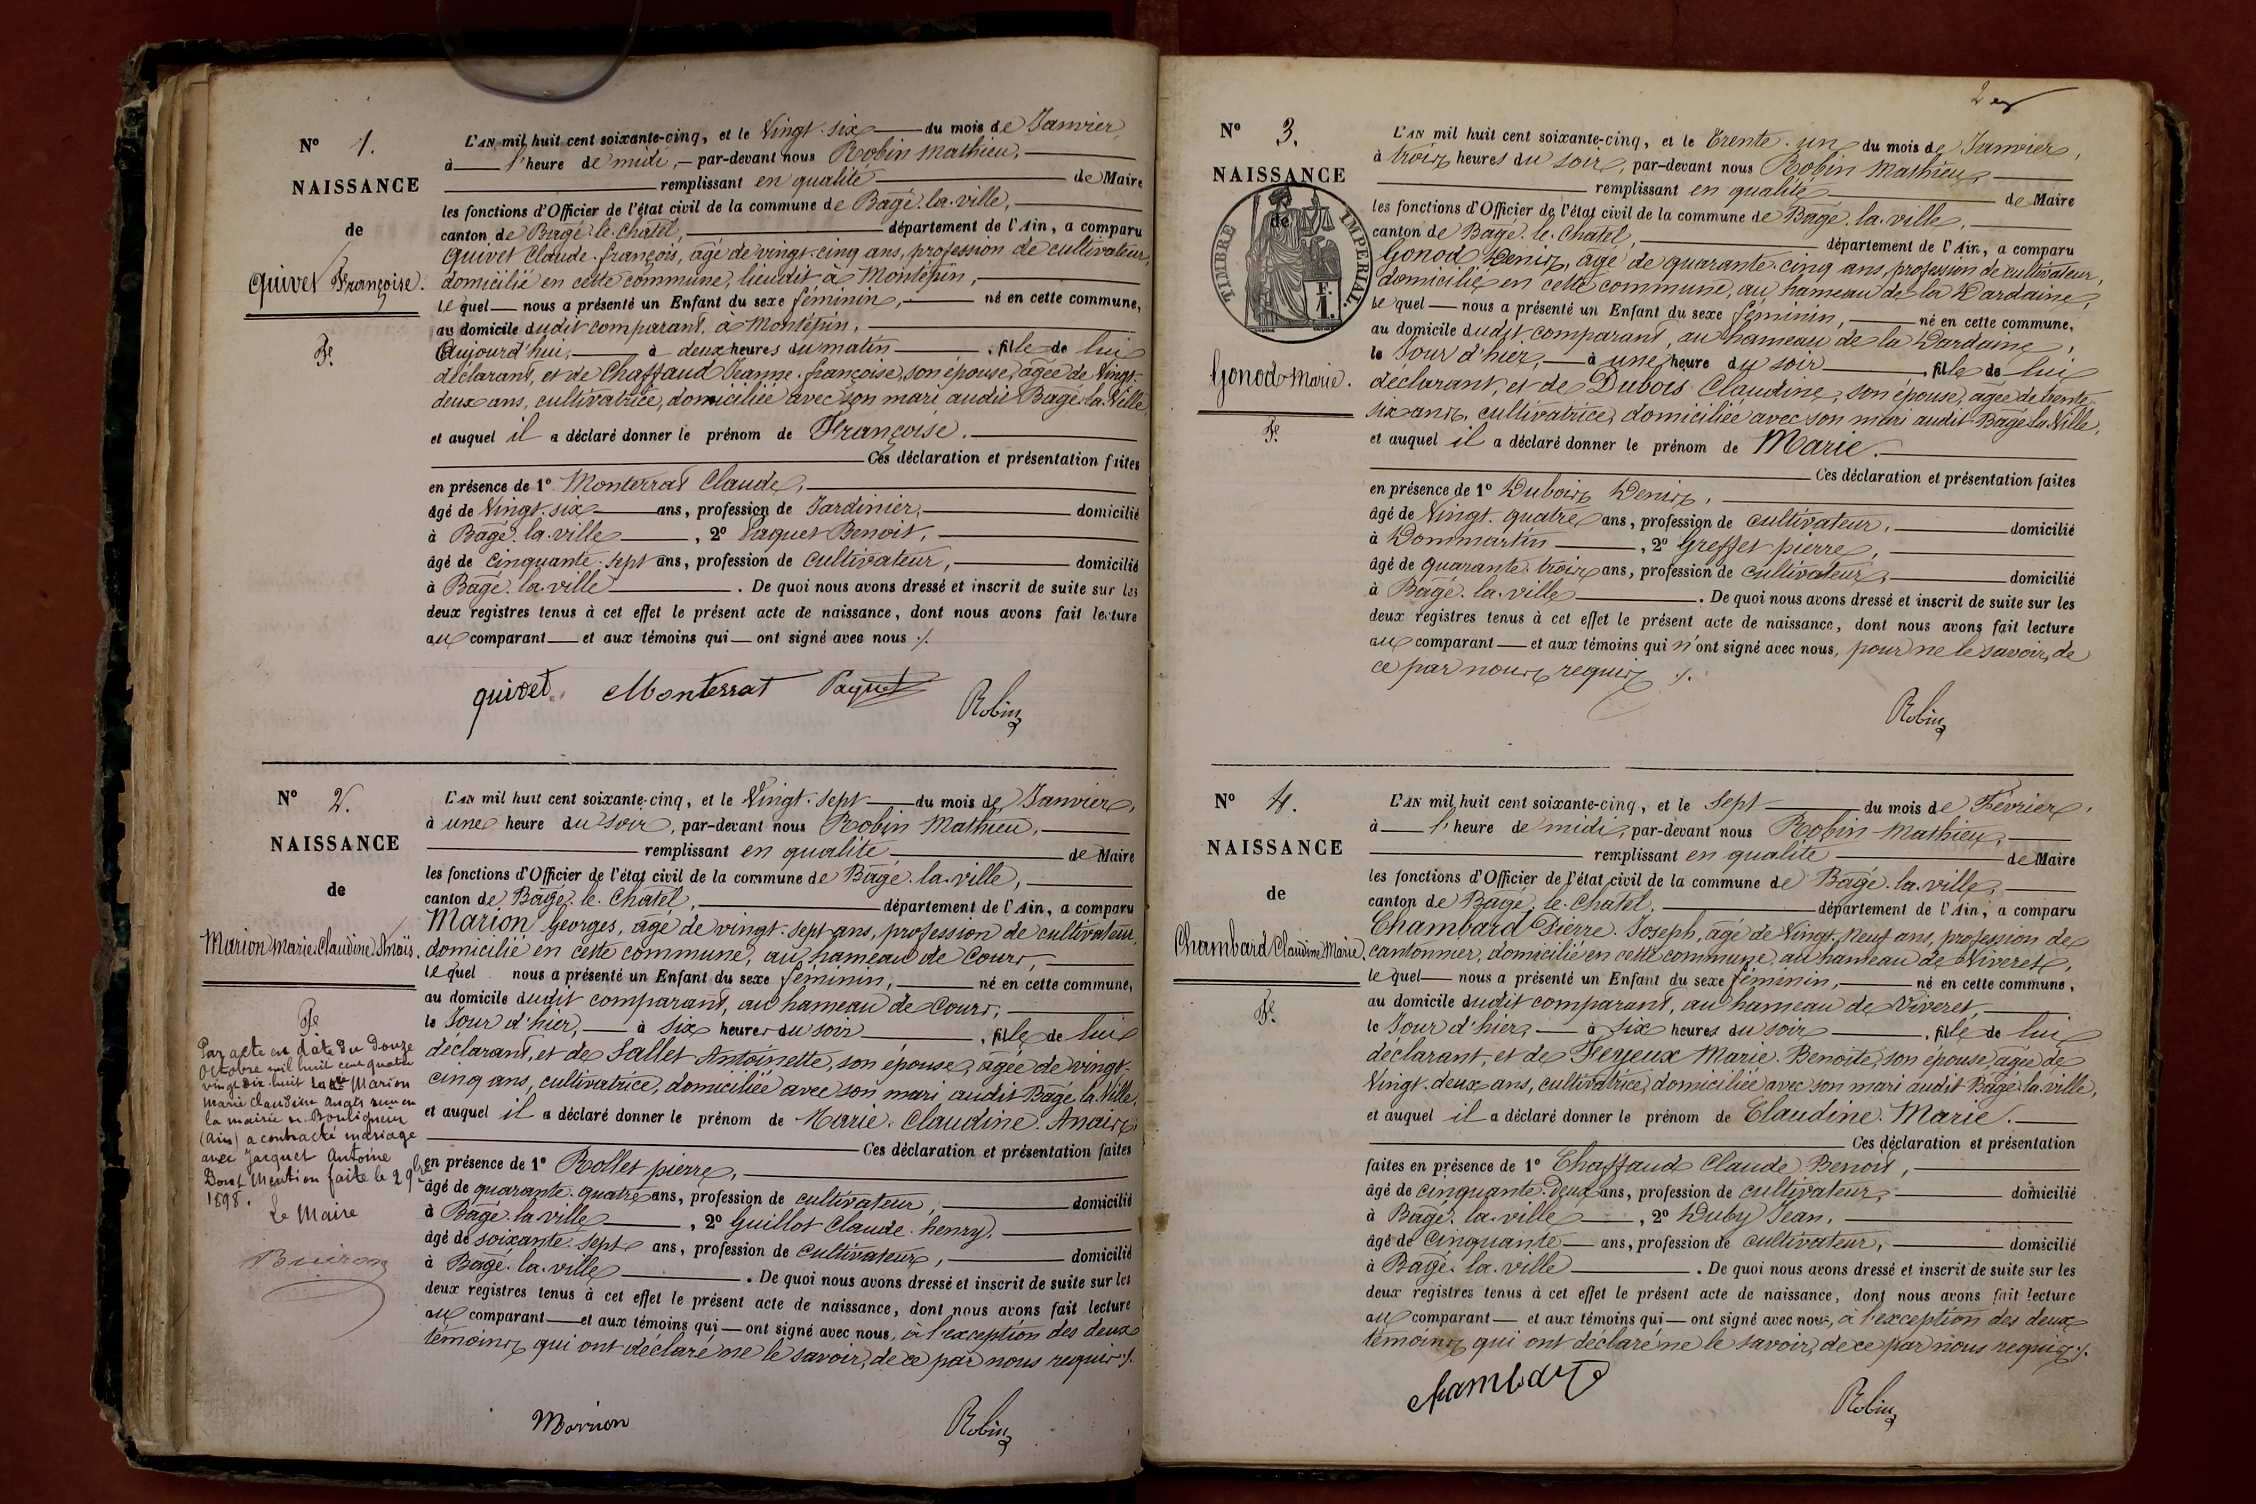 Nº 1.
NAISSANCE
de
Quivet Françoise.
Fe
L'AN mil huit cent soixante-cinq, et le Vingt-six du mois de Janvier,
à l'heure de midi, par-devant nous Robin Mathieu,
remplissant en qualité de Maire
les fonctions d'Officier de l'état civil de la commune de Bagé-la-ville,
canton de Bagé-le-Chatel, département de l'Ain, a comparu
Quivet Claude-françois, âgé de vingt-cinq ans, profession de cultivateur,
domicilié en cette commune, lieudit à Montépin,
Lequel nous a présenté un Enfant du sexe féminin, né en cette commune,
au domicile dudit comparant, à Montépin,
Aujourd'hui, à deux heures du matin, fille de lui
déclarant, et de Chaffaud Jeanne-françoise, son épouse, âgée de Vingt-
deux ans, cultivatrice, domiciliée avec son mari audit Bagé-la-Ville,
et auquel il a déclaré donner le prénom de Françoise.
Ces déclaration et présentation faites
en présence de 1º Monterrat Claude,
âgé de Vingt-six ans, profession de Jardinier, domicilié
à Bagé-la-ville, 2º Paquet Benoit,
âgé de cinquante-sept ans, profession de cultivateur, domicilié
à Bagé-la-ville. De quoi nous avons dressé et inscrit de suite sur les
deux registres tenus à cet effet le présent acte de naissance, dont nous avons fait lecture
au comparant et aux témoins qui ont signé avec nous ./.
quivet Monterrat Paquet
Robin
Nº 2.
NAISSANCE
de
Marion Marie-Claudine-Anaïs.
Fe
Par acte en date du Douze
Octobre mil huit cent quatre
vingt dix-huit la Marion
Marie Claudine Anaïs
la mairie de Bouligneux
(Ain) a contracté mariage
avec Jacquet Antoine
Dont Mention faite le 29
1898.
Le Maire
Buiron
L'AN mil huit cent soixante-cinq, et le Vingt-sept du mois de Janvier,
à une heure du soir, par-devant nous Robin Mathieu,
remplissant en qualité de Maire
les fonctions d'Officier de l'état civil de la commune de Bagé-la-ville,
canton de Bagé-le-Chatel, département de l'Ain, a comparu
Marion Georges, âgé de vingt-sept ans, profession de cultivateur,
domicilié en cette commune, au hameau de Cours,
Lequel nous a présenté un Enfant du sexe féminin, né en cette commune,
au domicile dudit comparant, au hameau de Cours,
le Jour d'hier, à six heures du soir, fille de lui
déclarant, et de Sallet Antoinette, son épouse, âgée de vingt-
cinq ans, cultivatrice, domiciliée avec son mari, audit Bagé-la-Ville,
et auquel il a déclaré donner le prénom de Marie-Claudine-Anaïs
Ces déclaration et présentation faites
en présence de 1º Rollet pierre,
âgé de quarante-quatre ans, profession de cultivateur, domicilié
à Bagé-la-ville, 2º Guillot Claude-henry,
âgé de soixante-sept ans, profession de cultivateur, domicilié
à Bagé-la-ville. De quoi nous avons dressé et inscrit de suite sur les
deux registres tenus à cet effet le présent acte de naissance, dont nous avons fait lecture
au comparant et aux témoins qui ont signé avec nous, à l'exception des deux
témoins qui ont déclaré ne le savoir, de ce par nous requis ./.
Marion
Robin
2 
Nº 3.
NAISSANCE
de
TIMBRE IMPERIAL.
F.
1.
Gonod Marie.
Fe
L'AN mil huit cent soixante-cinq, et le Trente-un du mois de Janvier,
à trois heures du soir, par-devant nous Robin Mathieu,
remplissant en qualité de Maire
les fonctions d'Officier de l'état civil de la commune de Bagé-la-ville,
canton de Bagé-le-Chatel, département de l'Ain, a comparu
Gonod Denis, âgé de quarante-cinq ans, profession de cultivateur,
domicilié en cette commune, au hameau de la Dardaine,
Lequel nous a présenté un Enfant du sexe féminin, né en cette commune,
au domicile dudit comparant, au hameau de la Dardaine,
le Jour d'hier, à une heure du soir, fille de lui
déclarant, et de Dubois Claudine, son épouse, âgée de trente-
six ans, cultivatrice, domiciliée avec son mari audit Bagé-la-Ville,
et auquel il a déclaré donner le prénom de Marie.
Ces déclaration et présentation faites
en présence de 1º Dubois Denis,
âgé de Vingt-quatre ans, profession de cultivateur, domicilié
à Dommartin, 2º Greffet pierre,
âgé de quarante-trois ans, profession de cultivateur, domicilié
à Bagé-la-ville. De quoi nous avons dressé et inscrit de suite sur les
deux registres tenus à cet effet le présent acte de naissance, dont nous avons fait lecture
au comparant et aux témoins qui n'ont signé avec nous, pour ne le savoir, de
ce par nous requis ./.
Robin
Nº 4.
NAISSANCE
de
Chambard Claudine Marie.
Fe
L'AN mil huit cent soixante-cinq, et le sept du mois de Février,
à l'heure de midi, par-devant nous Robin Mathieu,
remplissant en qualité de Maire
les fonctions d'Officier de l'état civil de la commune de Bagé-la-ville,
canton de Bagé-le-Chatel, département de l'Ain, a comparu
Chambard Pierre-Joseph, âgé de Vingt-Neuf ans, profession de
cantonnier, domicilié en cette commune au hameau de Viveret,
le quel nous a présenté un Enfant du sexe féminin, né en cette commune,
au domicile dudit comparant, au hameau de Viveret,
le Jour d'hier, à six heures du soir, fille de lui
déclarant, et de Feyeux Marie-Benoite, son épouse, âgée de
Vingt-deux ans, cultivatrice, domiciliée avec son mari audit Bagé-la-ville,
et auquel il a déclaré donner le prénom de Claudine-Marie.
Ces déclaration et présentation
faites en présence de 1º Chaffaud Claude Benoit,
âgé de cinquante-Deux ans, profession de cultivateur, domicilié
à Bagé-la-ville, 2º Duby Jean,
âgé de Cinquante ans, profession de cultivateur, domicilié
à Bagé-la-ville. De quoi nous avons dressé et inscrit de suite sur les
deux registres tenus à cet effet le présent acte de naissance, dont nous avons fait lecture
au comparant et aux témoins qui ont signé avec nous, à l'exception des deux
témoins qui ont déclaré ne le savoir, de ce par nous requis ./.
Robin